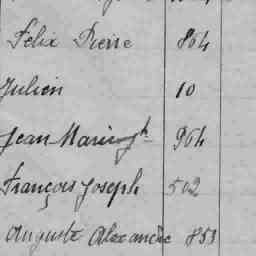 Félix Pierre 864
Julien 10
Jean Marie 964
François Joseph 502
Auguste Alexandre 853